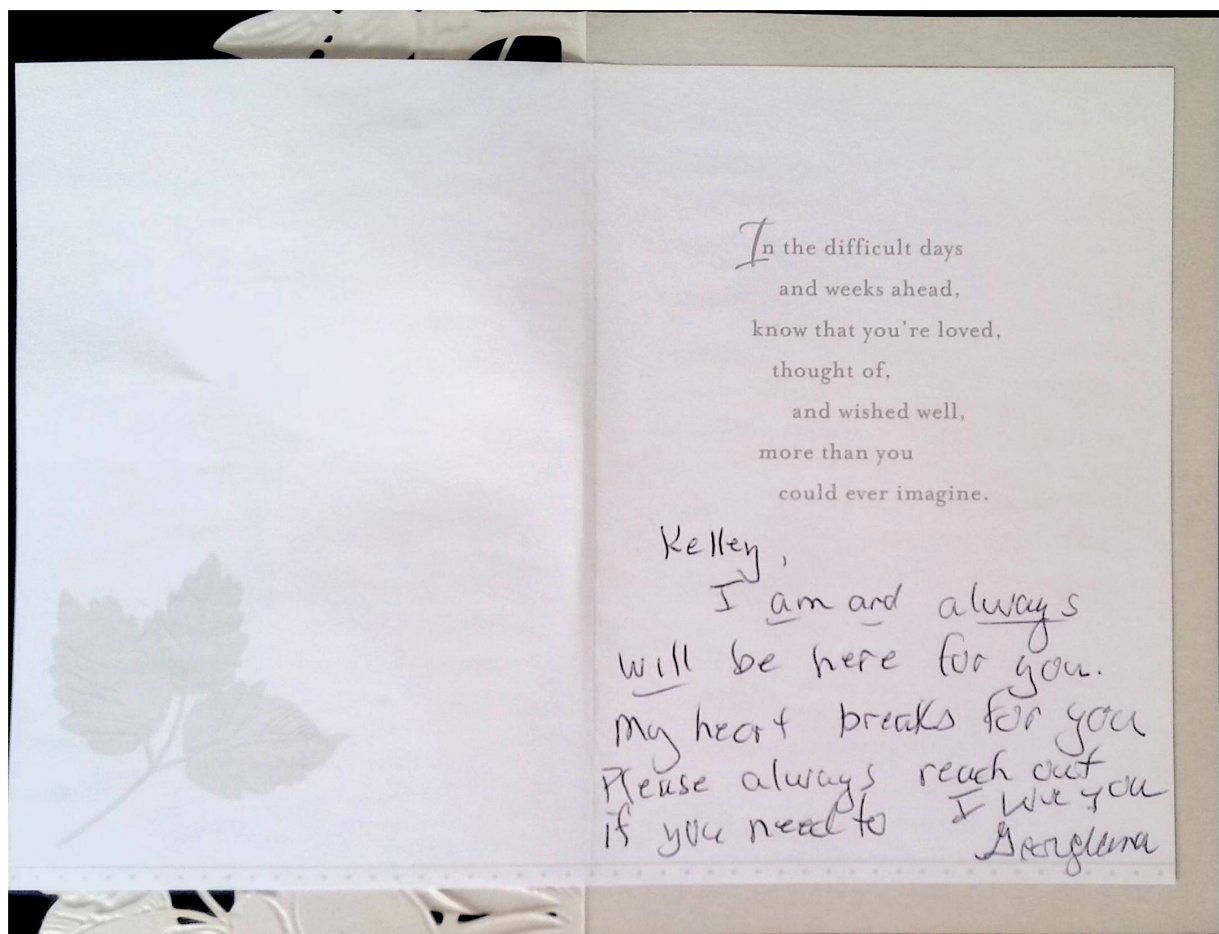 In the difficult days
and weeks ahead,
know that you're loved,
thought of,
and wished well,
more than you
could ever imagine.
Kelley,
I am and always
will be here for you.
My heart breaks for you
Please always reach out
if you need to I love you
Georgianna